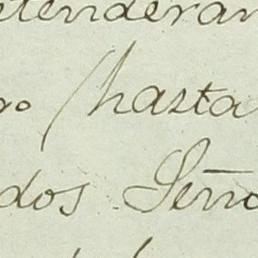 etenderan
ro (hasta
dos Seño